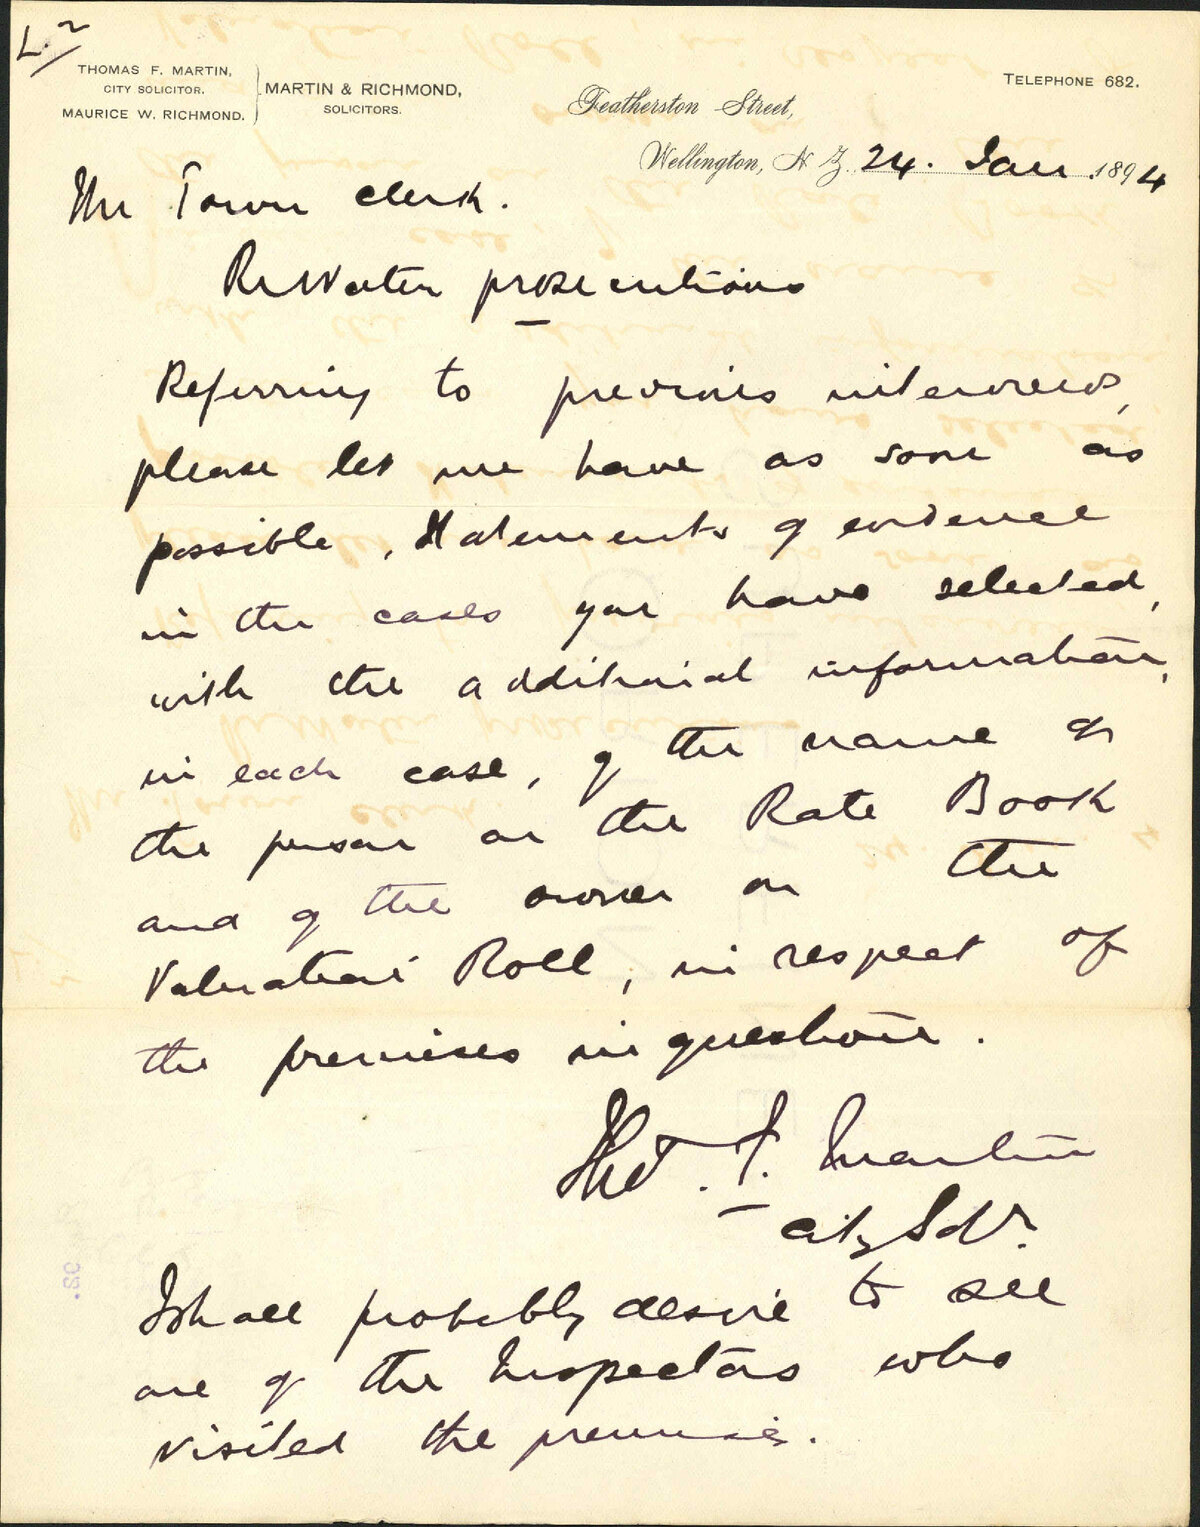 L. 2
THOMAS F. MARTIN,
CITY SOLICITOR.
MAURICE W. RICHMOND.
MARTIN & RICHMOND,
SOLICITORS.
TELEPHONE 682.
Featherston Street,
Wellington, N.Z. 24. Jan 1894
The Town Clerk.
Re Water prosecutions
Referring to previous interviews,
please let me have as soon as
possible, statements of evidence
in the cases you have selected,
with the additional information,
in each case, of the name of
the person on the Rate Book
and of the owner on the
Valuation Roll, in respect of
the premises in question.
Tho. F. Martin
City Solr.
I shall probably desire to see
one of the Inspectors who
visited the premises.